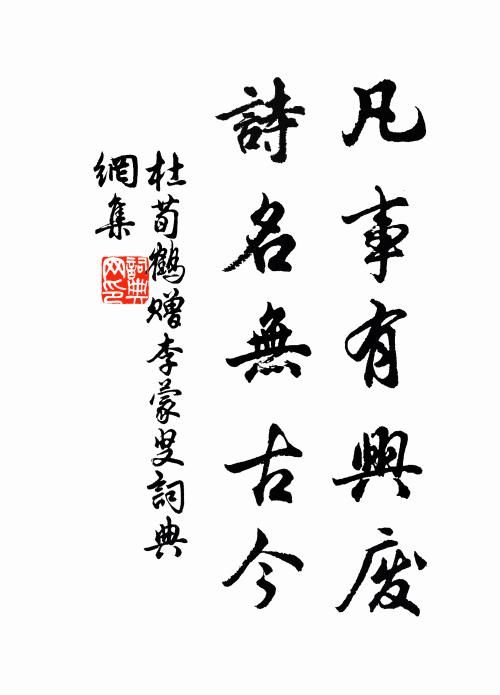 凡事有興廢
詩名無古今
杜荀鶴贈李蒙叟詞典
網集
詞典
网印